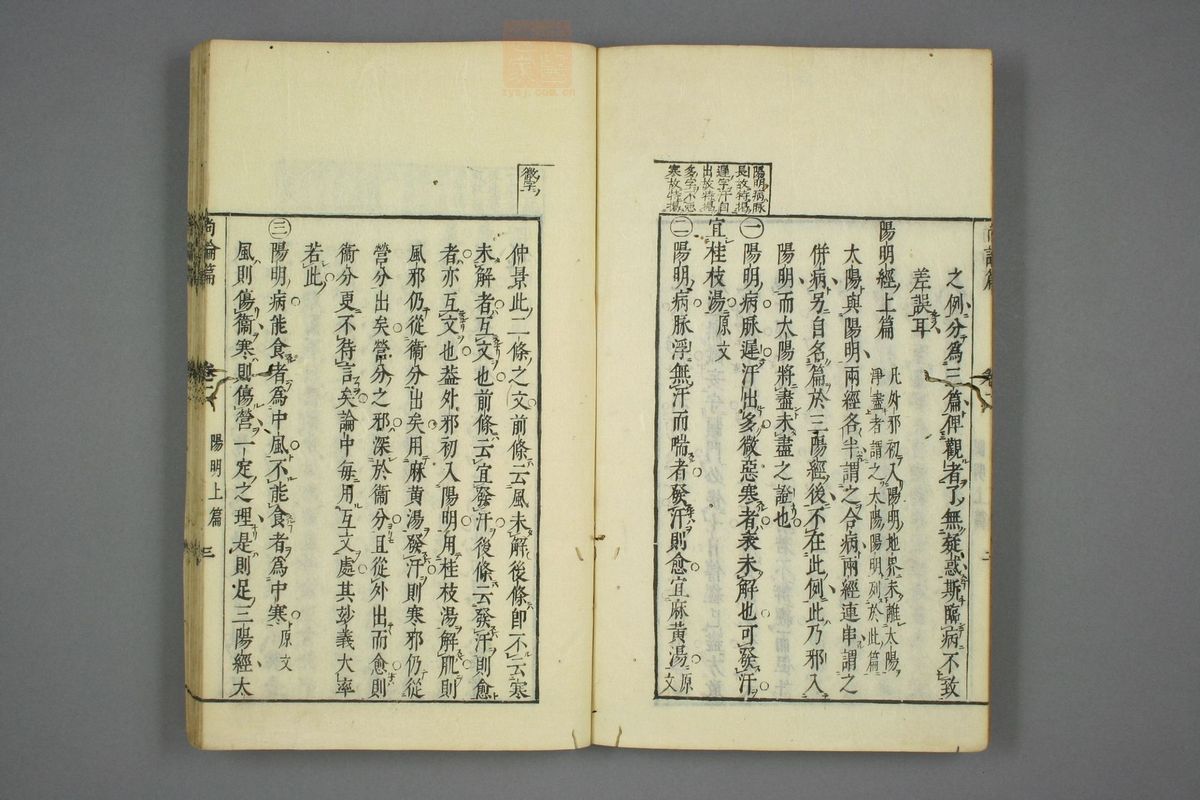 陽明病脉
長故特揭
遲字汗自
出故特揭
多字不惡
寒故特揭
之例分為三篇俾觀者了無疑惑斯臨病不致
差誤耳
陽明經上篇
凡外邪初入陽明地界未離太陽
淨盡者謂之太陽陽明列於此篇
太陽與陽明兩經各半謂之合病兩經連串謂之
併病另自名篇於三陽經後不在此例此乃邪入
陽明而太陽將盡未盡之證也
㊀陽明病脉遲汗出多微惡寒者表未解也可發汗
宜桂枝湯原文
㊁陽明病脉浮無汗而喘者發汗則愈宜麻黃湯原文
微字
仲景此二條之文前條云風未解後條即不云寒
未解者互文也前條云宜發汗後條云發汗則愈
者亦互文也葢外邪初入陽明用桂枝湯解肌則
風邪仍從衞分出矣用麻黃湯發汗則寒邪仍從
營分出矣營分之邪深於衞分且從外出而愈則
衞分更不待言矣論中每用互文處其玅義大率
若此
㊂陽明病能食者為中風不能食者為中寒原文
風則傷衞寒則傷營一定之理是則足三陽經太
尚論篇
卷二
陽明上篇
三
zysj.com.cn